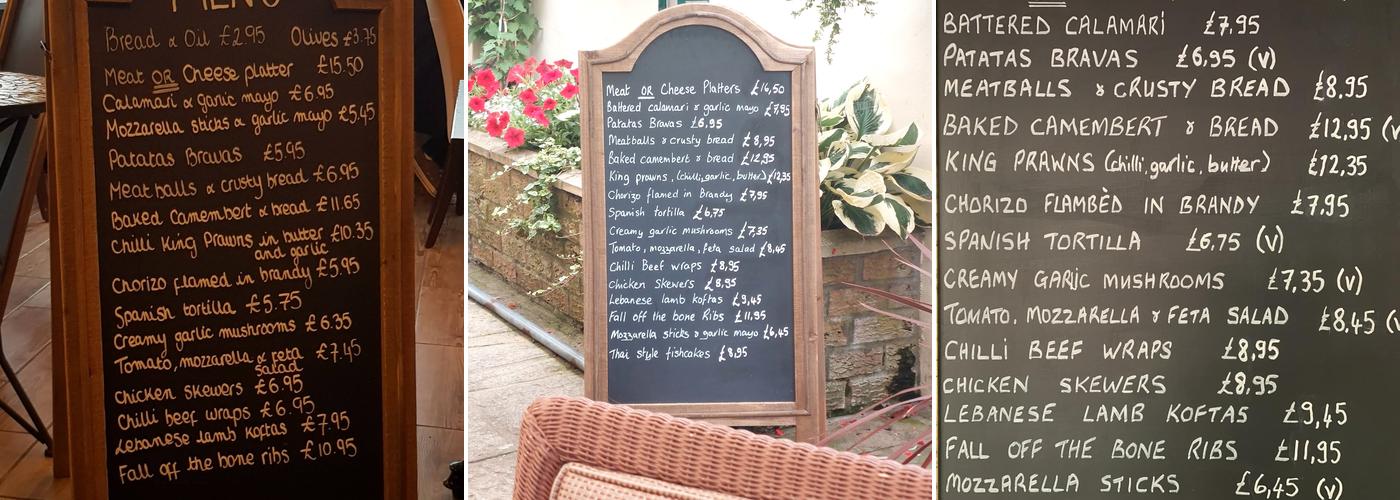 MENU
Bread & Oil £2.95 Olives £3.75
Meat OR Cheese platter £15.50
Calamari & garlic mayo £6.95
Mozzarella sticks & garlic mayo £5,45
Patatas Bravas £5.95
Meatballs & crusty bread £6.95
Baked Camembert & bread £11.65
Chilli King Prawns in butter £10.35
and garlic
Chorizo flamed in brandy £5.95
Spanish tortilla £5.75
Creamy garlic mushrooms £6.35
Tomato, mozzarella & feta £7.45
salad
Chicken skewers £6.95
Chilli beef wraps £6.95
Lebanese lamb Koftas £7.95
Fall off the bone ribs £10.95
Meat OR Cheese Platters £16,50
Battered calamari & garlic mayo £7,95
Patatas Bravas £6,95
Meatballs & crusty bread £8,95
Baked camembert & bread £12,95
King prawns, (chilli, garlic, butter) £12,35
Chorizo flamed in Brandy £7,95
Spanish tortilla £6,75
Creamy garlic mushrooms £7,35
Tomato, mozzarella, feta salad £8,45
Chilli Beef wraps £8,95
Chicken Skewers £8,95
Lebanese lamb koftas £9,45
Fall off the bone Ribs £11,95
Mozzarella sticks & garlic mayo £6,45
Thai style fishcakes £8,95
BATTERED CALAMARI £7,95
PATATAS BRAVAS £6,95 (v)
MEATBALLS & CRUSTY BREAD £8,95
BAKED CAMEMBERT & BREAD £12,95 (v
KING PRAWNS (chilli, garlic, butter) £12,35
CHORIZO FLAMBÈD IN BRANDY £7,95
SPANISH TORTILLA £6,75 (v)
CREAMY GARLIC MUSHROOMS £7,35 (v)
TOMATO, MOZZARELLA & FETA SALAD £8,45 (v
CHILLI BEEF WRAPS £8,95
CHICKEN SKEWERS £8,95
LEBANESE LAMB KOFTAS £9,45
FALL OFF THE BONE RIBS £11,95
MOZZARELLA STICKS £6,45 (v)